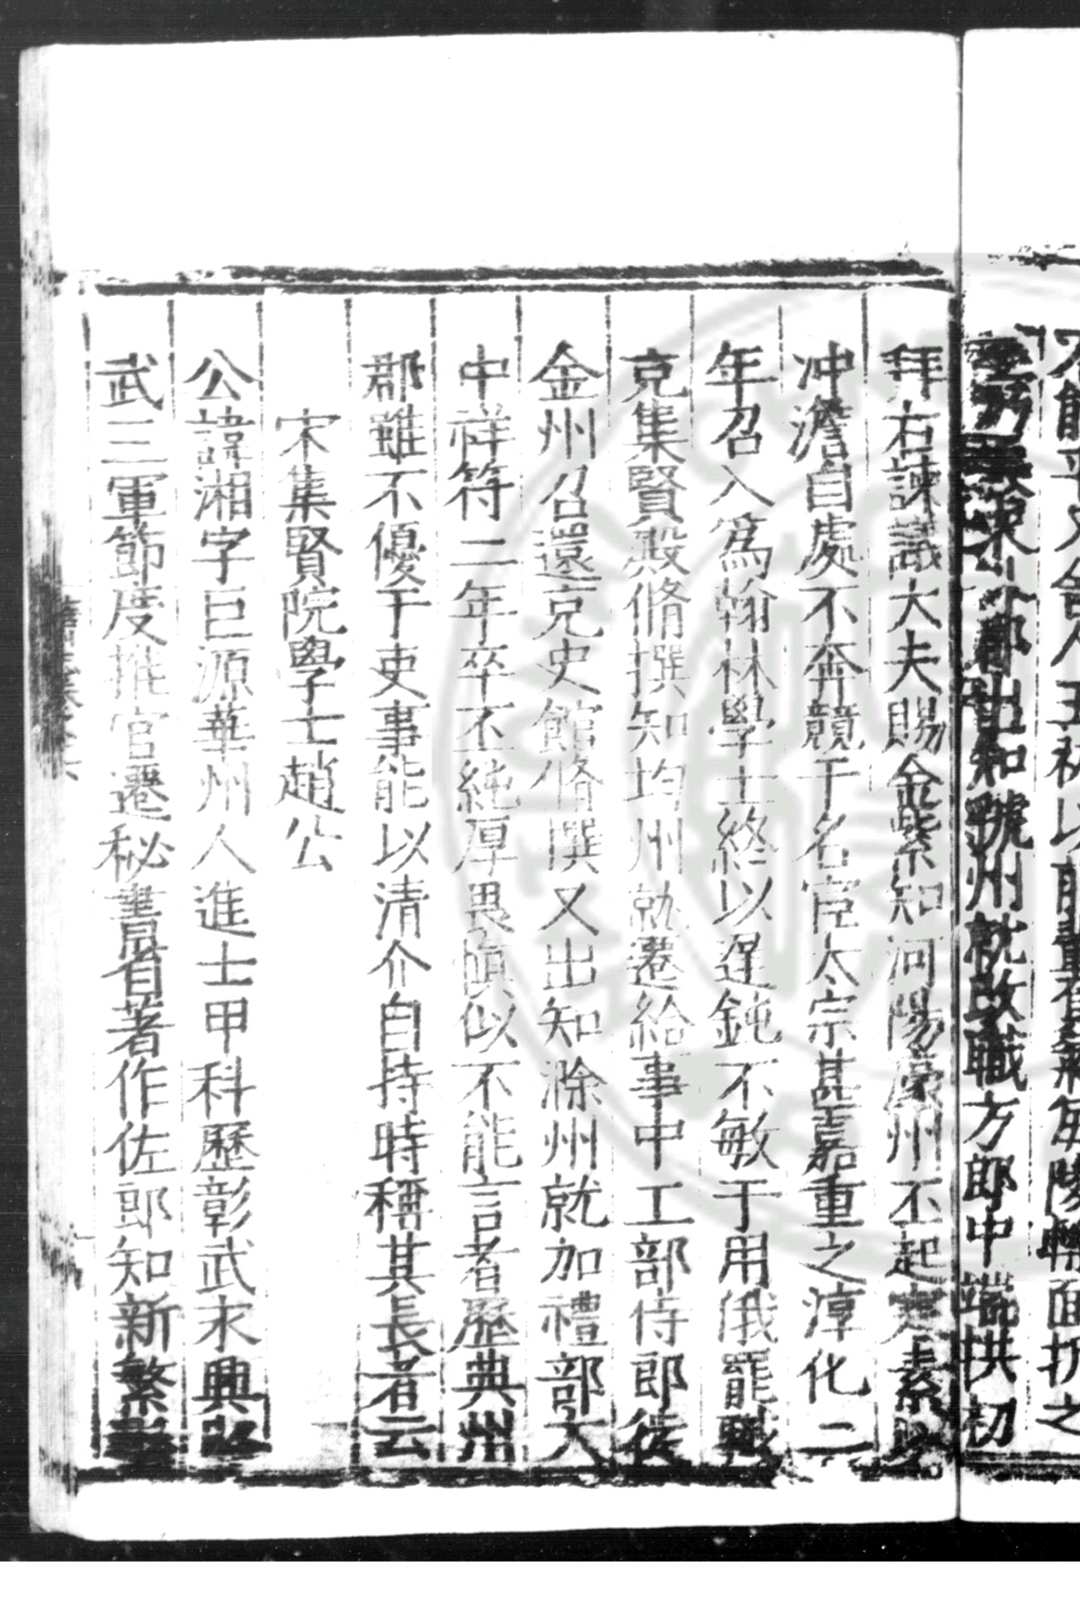 不能平又舍人王祐以
東小郡出知虢州就改職方郎中端拱初
拜右諫議大夫賜金紫知河陽濠州丕起定素以
冲澹自處不奔競于名宦太宗甚嘉重之淳化二
年召入爲翰林學士終以遲鈍不敏于用俄罷職
克集賢殿脩撰知均州就遷給事中工部侍郎徙
金州召還克史館脩撰又出知滁州就加禮部大
中祥符二年卒丕純厚畏慎似不能言者歷典州
郡雖不優于吏事能以清介自持時稱其長者云
宋集賢院學士趙公
公諱湘字巨源華州人進士甲科歷彰武永興昭
武三軍節度推官遷秘書省著作佐郎知新繁